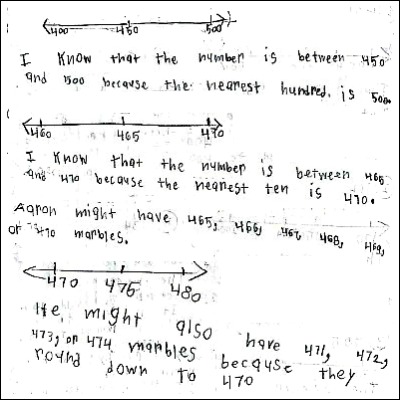 400 450 500
I know that the number is between 450
and 500 because the nearest hundred. is 500.
460 465 470
I know that the number is between 465
and 470 because the nearest ten is 470.
Aaron might have 465, 466, 467 468, 469,
or 470 marbles.
470 475 480
He might also have 471, 472,
473, or 474 marbles because they
round down to 470